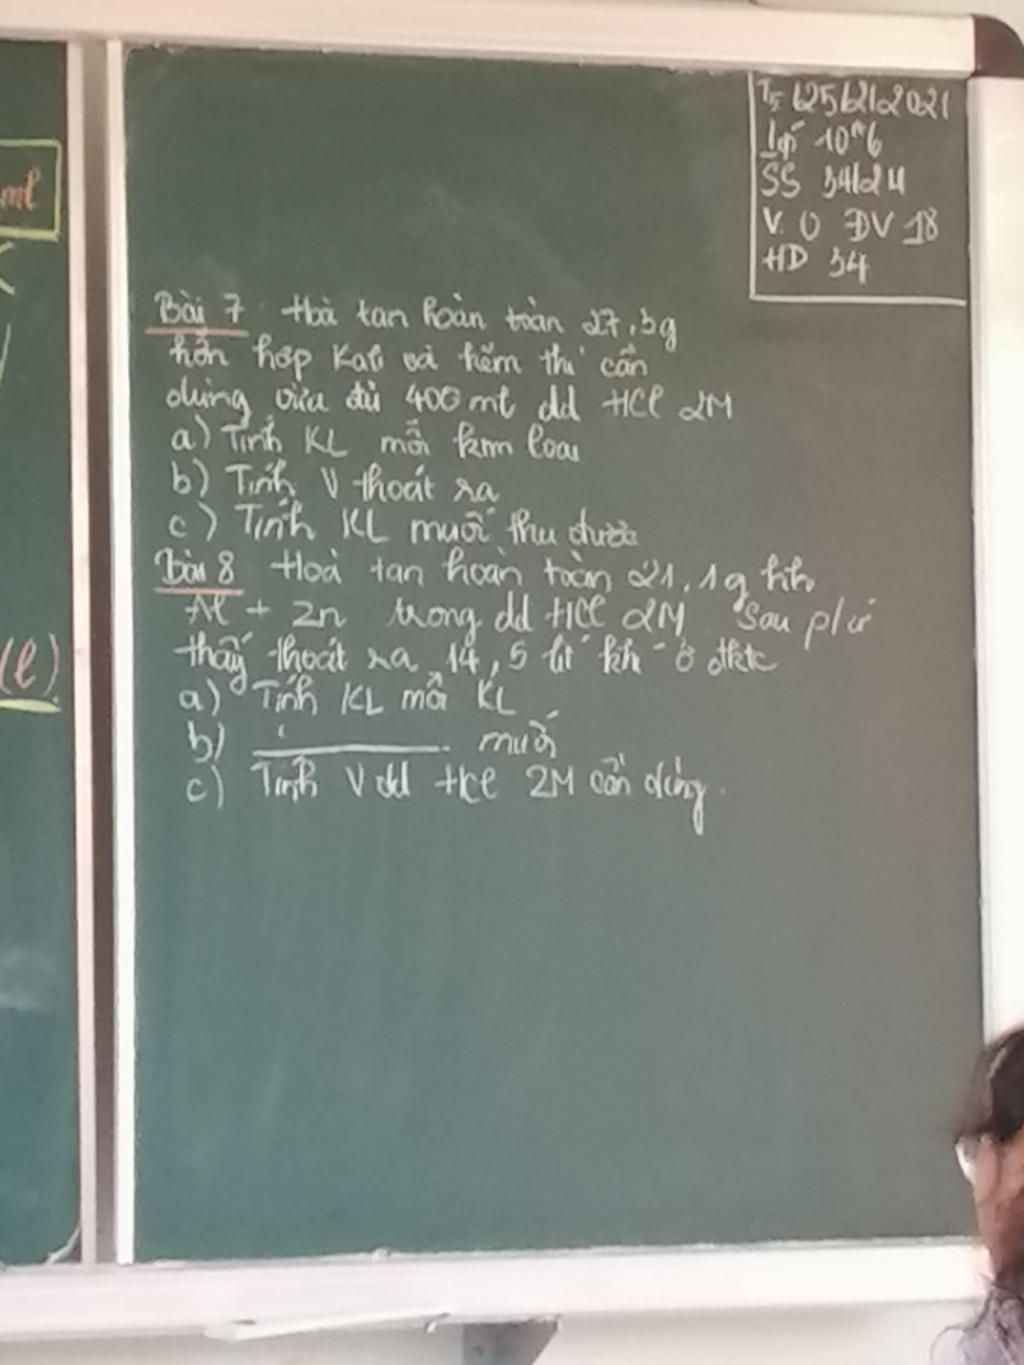 ml
(l)
T5 25/2/2021
Lớp 10A6
SS 34/24
V. 0 ĐV 18
HD 34
Bài 7 Hoà tan hoàn toàn 27,3g
hỗn hợp Kali và kẽm thì cần
dùng vừa đủ 400 ml dd HCl 2M
a) Tính KL mỗi kim loại
b) Tính V thoát ra
c) Tính KL muối thu được
Bài 8 Hoà tan hoàn toàn 21,1g hh
Al + Zn trong dd HCl 2M Sau p/ứ
thấy thoát ra 14,5 lít khí ở đktc
a) Tính KL mỗi KL
b) " muối
c) Tính V dd HCl 2M cần dùng.